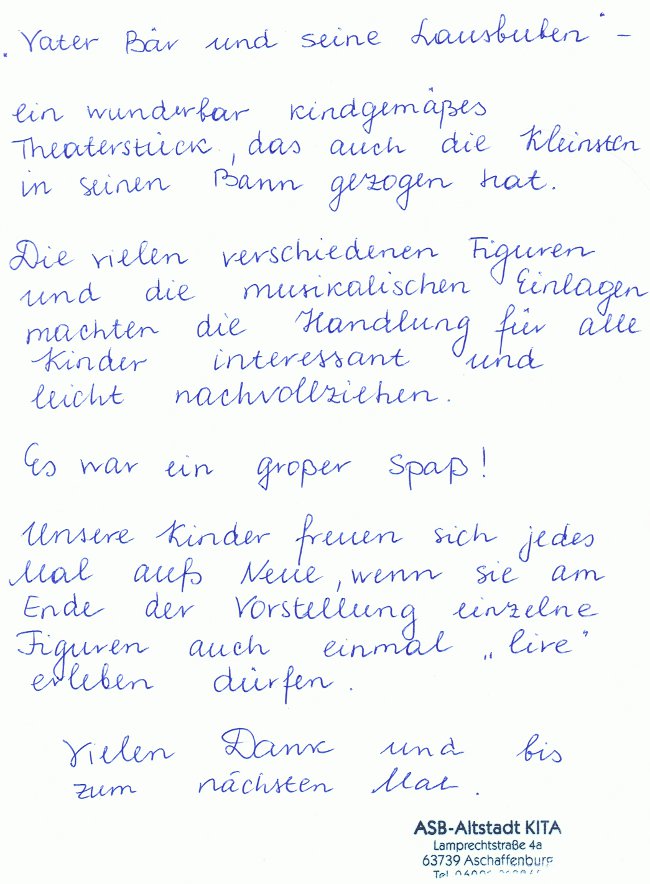 "Vater Bär und seine Lausbuben" –
ein wunderbar kindgemäßes
Theaterstück, das auch die Kleinsten
in seinen Bann gezogen hat.
Die vielen verschiedenen Figuren
und die musikalischen Einlagen
machten die Handlung für alle
Kinder interessant und
leicht nachvollziehen.
Es war ein großer Spaß!
Unsere Kinder freuen sich jedes
Mal aufs Neue, wenn sie am
Ende der Vorstellung einzelne
Figuren auch einmal „live"
erleben dürfen.
Vielen Dank und bis
zum nächsten Mal.
ASB-Altstadt KITA
Lamprechtstraße 4a
63739 Aschaffenburg
Tel.